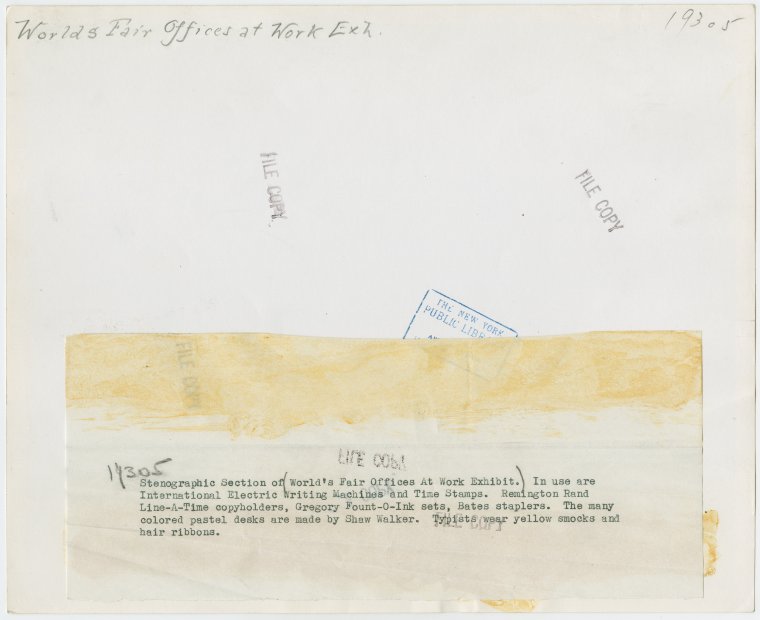 Worlds Fair Offices at Work Exh.
19305
FILE COPY
FILE COPY
THE NEW YORK
PUBLIC
FILE COPY
FILE COPY
19305
Stenographic Section of (World's Fair Offices At Work Exhibit.) In use are
International Electric Writing Machines and Time Stamps. Remington Rand
Line-A-Time copyholders, Gregory Fount-O-Ink sets, Bates staplers. The many
colored pastel desks are made by Shaw Walker. Typists wear yellow smocks and
hair ribbons.
FILE COPY